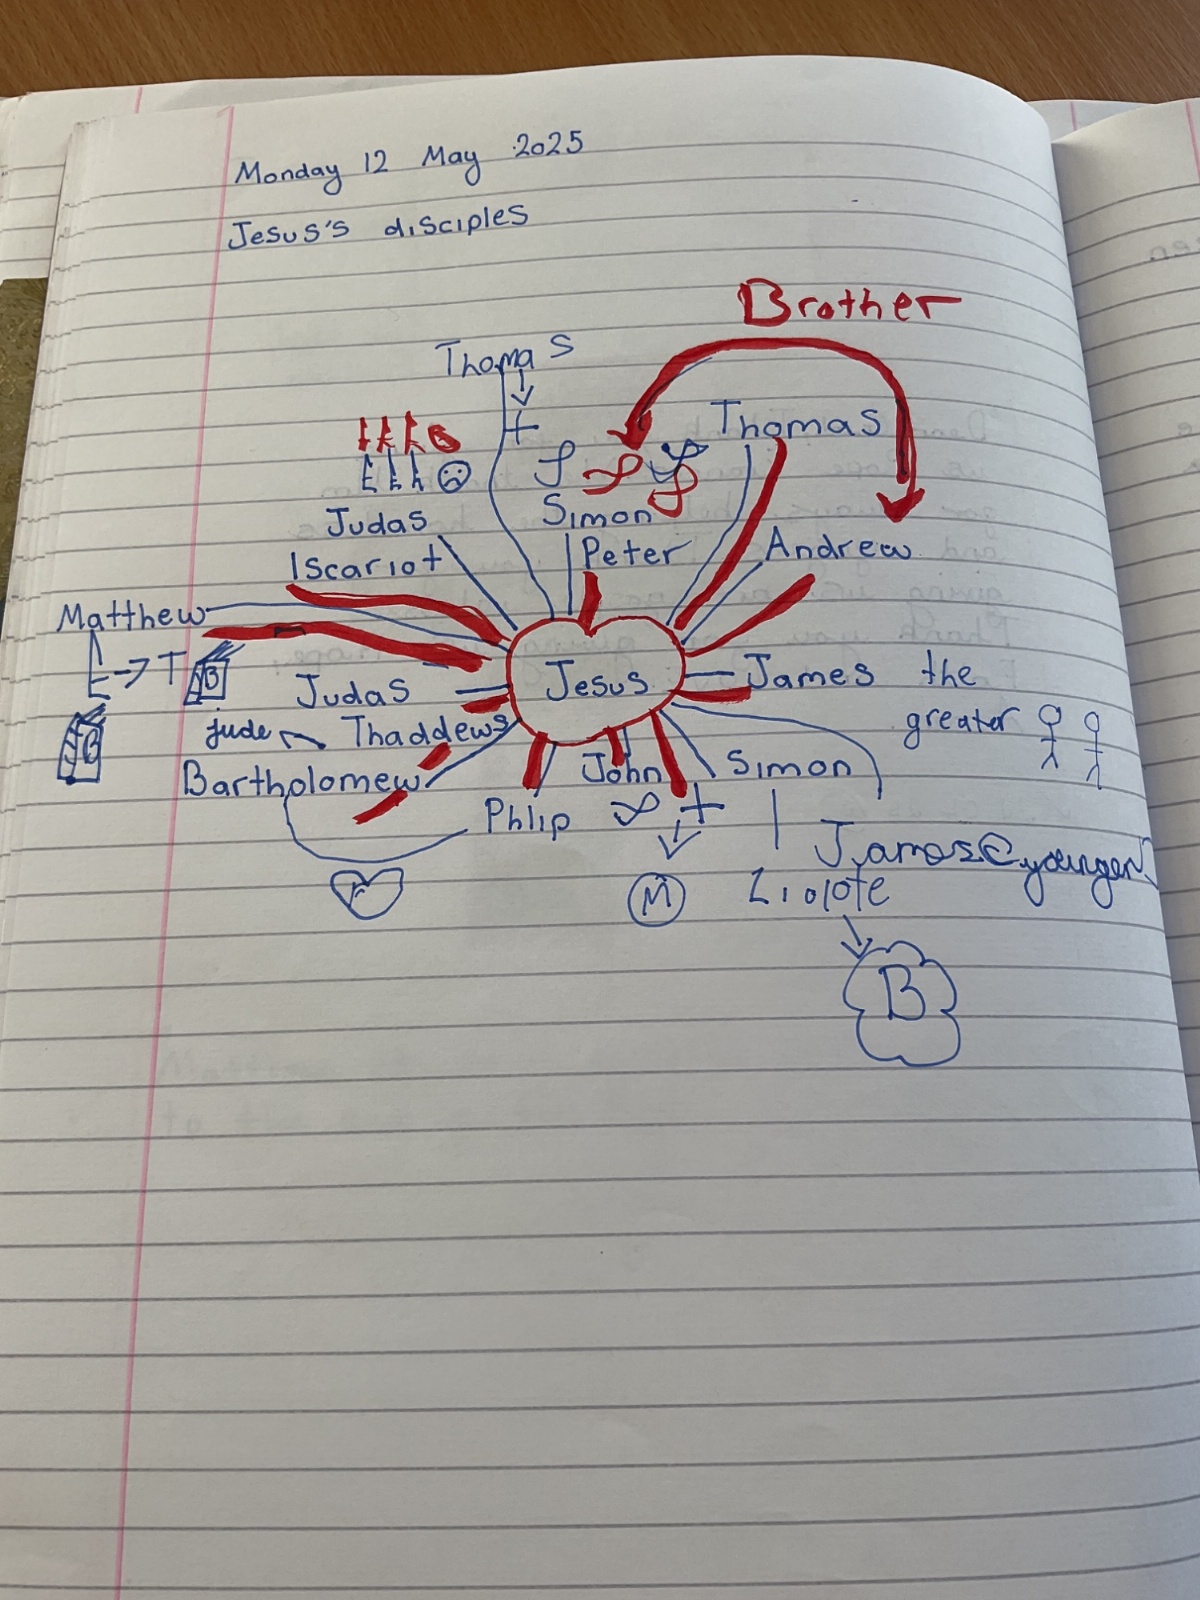 Monday 12 May 2025
Jesus's disciples
Brother
Thomas
Thomas
Judas
Iscariot
Simon
Peter
Andrew
Matthew
T B
B
Jesus
Judas
Thaddews
jude
James the
greater
Bartholomew
Phlip
John
Simon
James (younger)
M
B